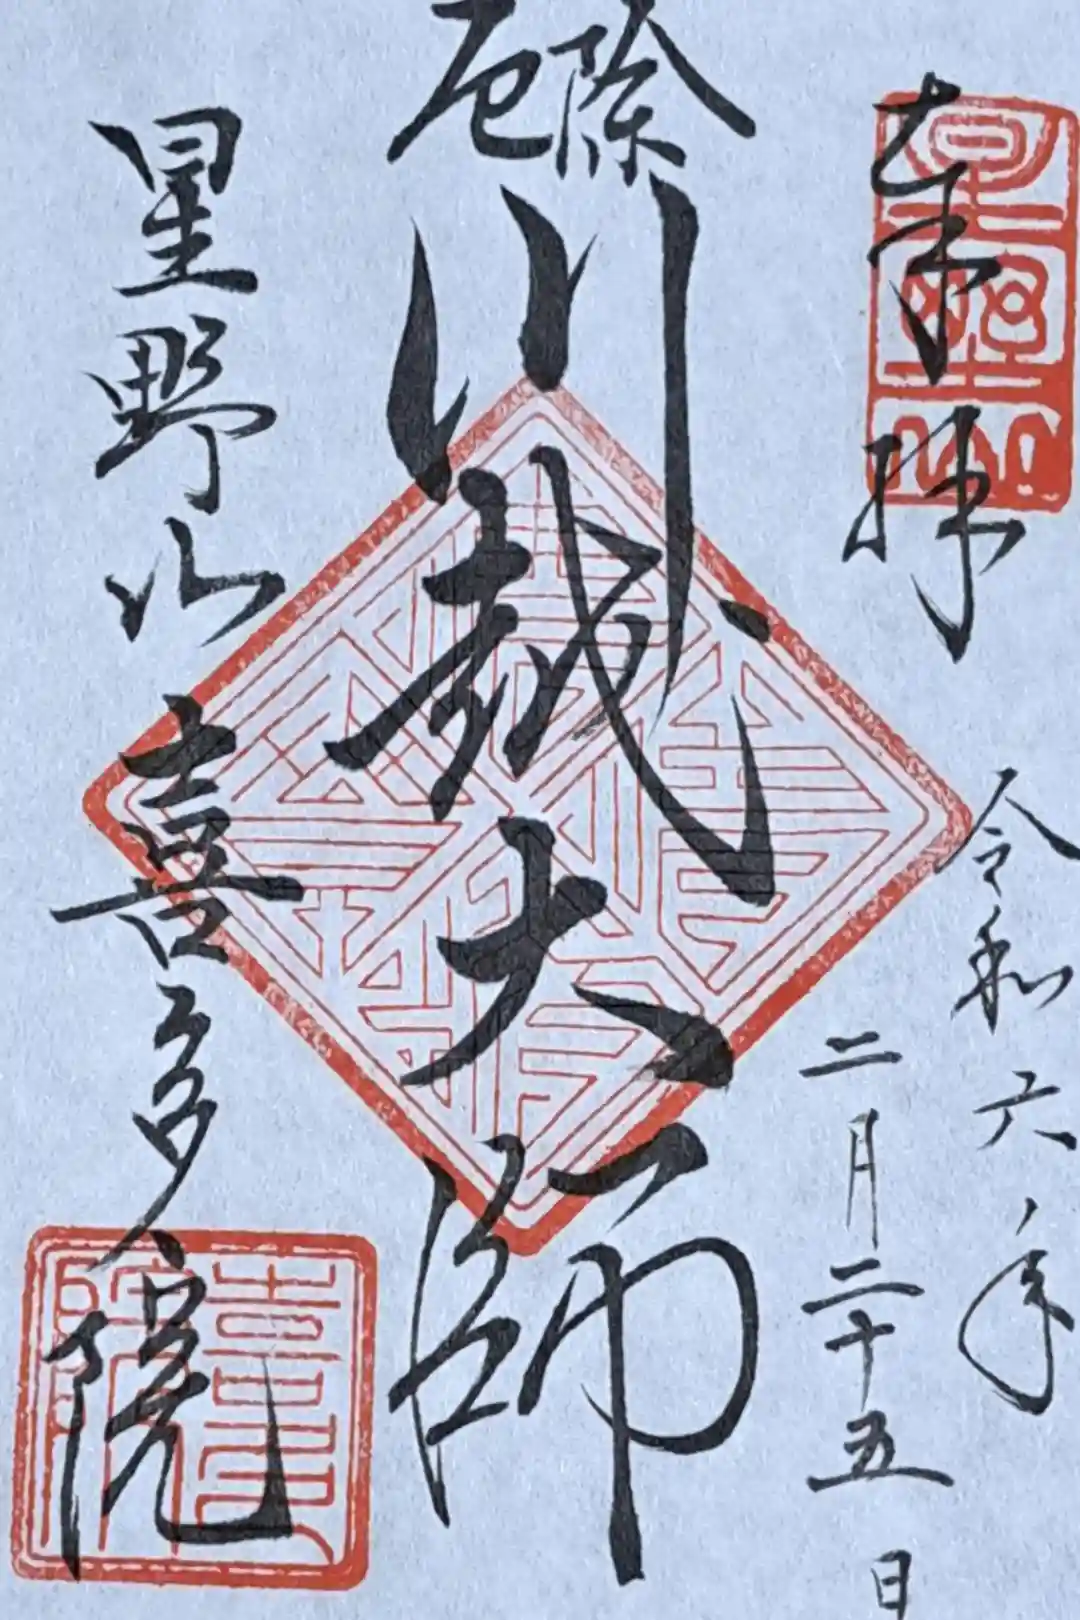 奉拝
令和六年
二月二十五日
厄除
川越大師
星野山
喜多院